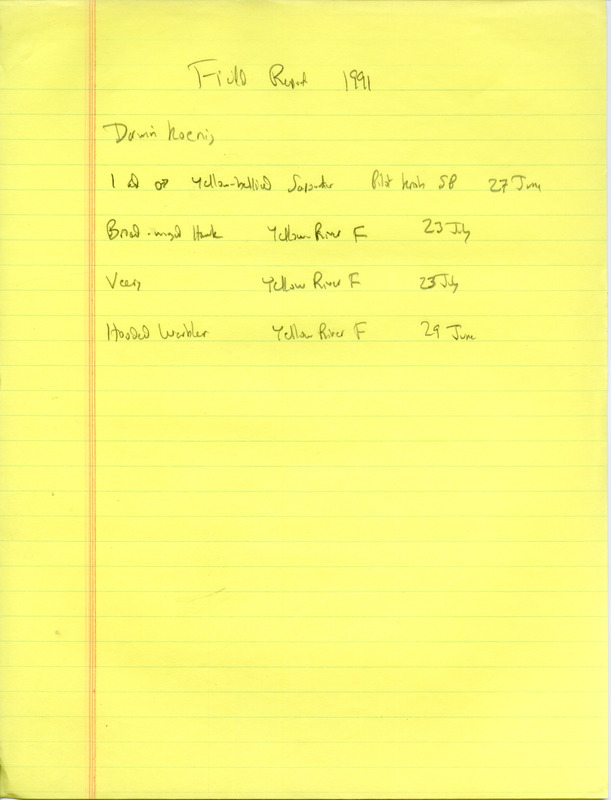 Field Report 1991
Darwin Koenig
1 ad Yellow-bellied Sapsucker Pilot Knob SP 27 June
Broad-winged Hawk Yellow River F 23 July
Veery Yellow River F 23 July
Hooded Warbler Yellow River F 29 June